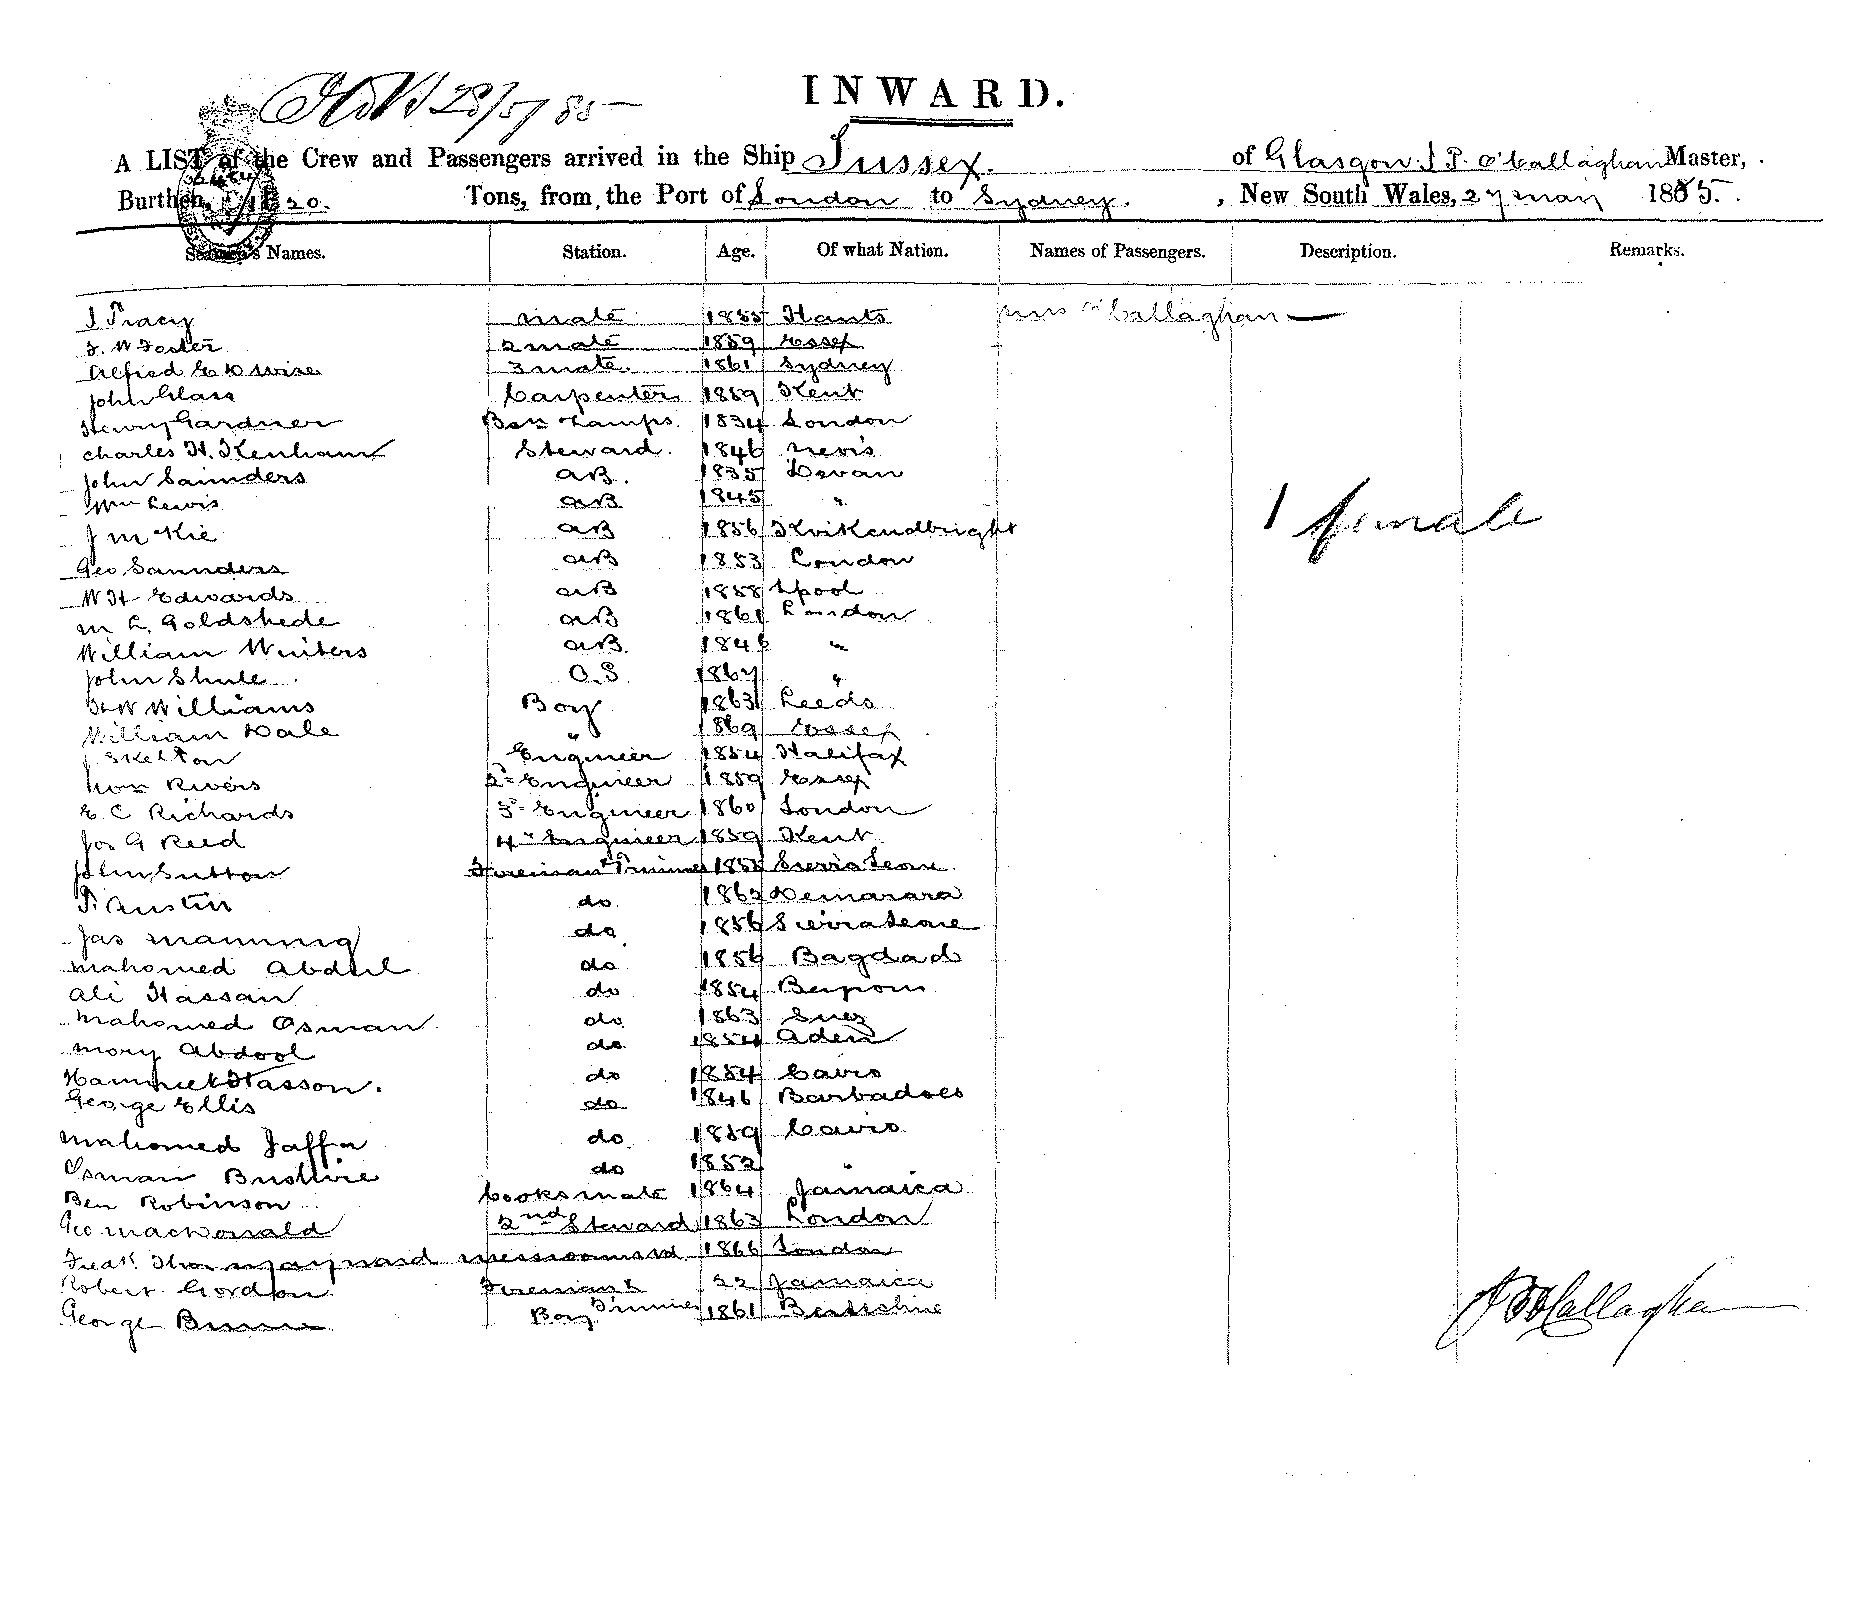 INWARD.
28/5/85
A LIST of the Crew and Passengers arrived in the Ship Sussex. of Glasgow J P. O'Callaghan Master,
Burthen, Tons, from the Port of London to Sydney. , New South Wales, 27 May 1885.
Seamen's Names. Station. Age. Of what Nation. Names of Passengers. Description. Remarks.
J Tracy mate 1855 Hants O'Callaghan
F. W Foster 2 mate 1859 Essex
Alfred E D Wise 3 mate. 1861 Sydney
John Glass Carpenter 1859 Kent
Henry Gardner Bsn Lamps. 1834 London
Charles H. Kenham Steward. 1846 Nevis
John Saunders AB. 1835 Devan
Wm Lewis AB 1845 "
J McKie AB 1856 Kirkendbright
1 female
Geo Saunders AB 1853 London
W H Edwards AB 1858 Lpool
M L. Goldshede AB 1861 London
William Winters AB. 1846 "
John Shule O.S 1867 "
H W Williams Boy 1863 Leeds
William Dale " 1869 Essex
J Skelton Engineer 1854 Halifax
Rivers 2d Engineer 1859 Essex
E C Richards 3d Engineer 1860 London
Jos G Reed 4th Engineer 1859 Kent
John Sutton Fireman & Trimmer 1858 Sierra Leone
P. Austin do 1863 Demarara
Jas Manning do 1856 Sierra Leone
Mahomed Abdul do 1856 Bagdad
Ali Hassan do 1854
Mahomed Osman do 1863 Suez
Mory Abdool do 1854 Aden
Hasson. do 1854 Cairo
George Ellis do 1846 Barbadoes
Mahomed Jaffer do 1859 Cairo
Osman Bushire do 1852 "
Ben Robinson Cooks mate 1864 Jamaica
Geo MacDonald 2nd Steward 1863 London
Thos Maynard 1866 London
Robert Gordon Fireman & Trimmer 22 Jamaica
George Boy 1861
J P O'Callaghan